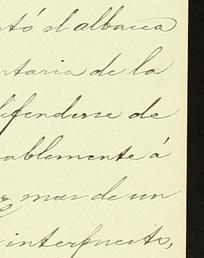 tó el albacea
ntaria de la
defenderse de
ablemente á
mas de un
interpuesto,